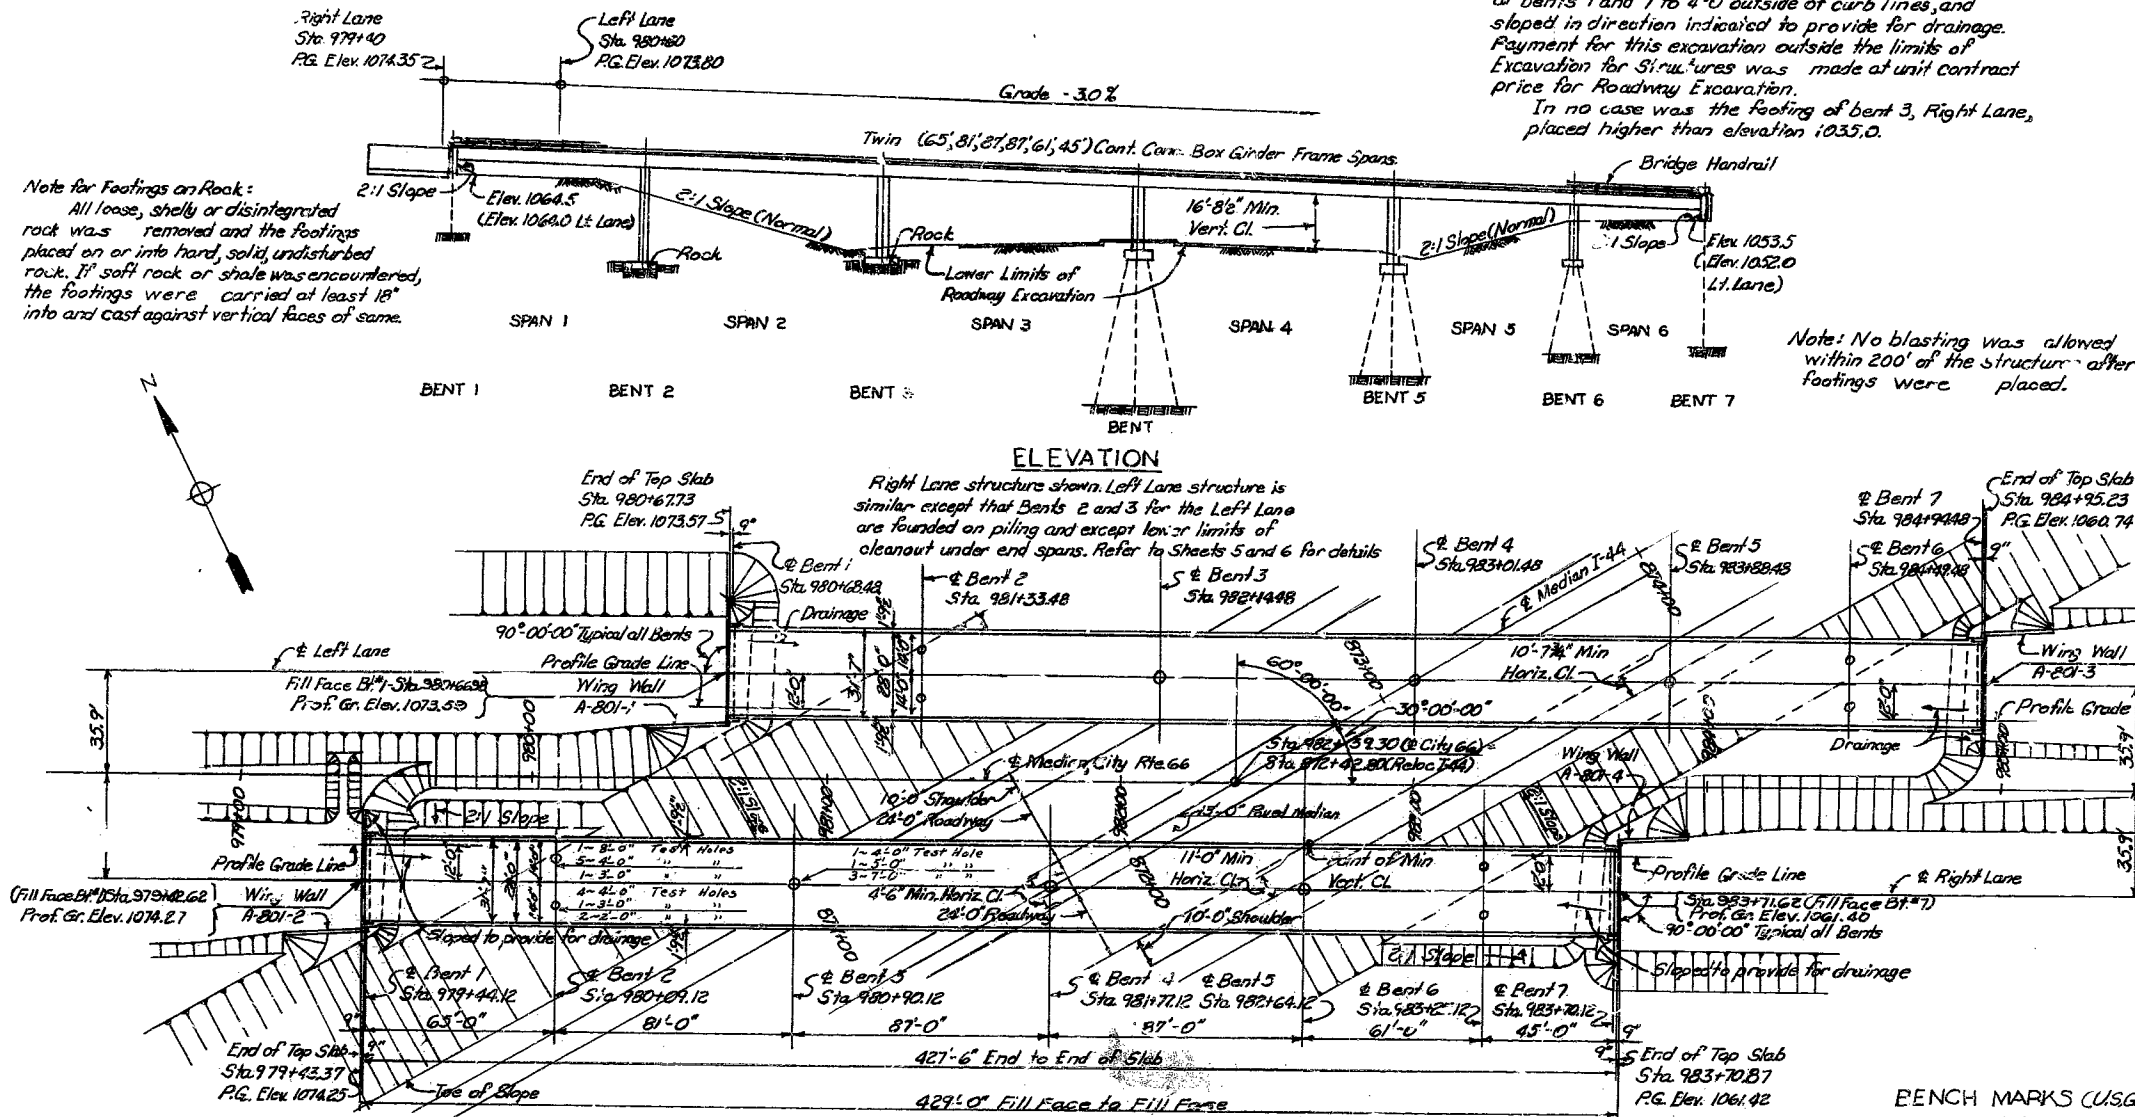 Right Lane
Sta. 979+40
P.G. Elev. 1074.35
Left Lane
Sta. 980+60
P.G. Elev. 1073.80
Grade - 3.0%
of bents 1 and 7 to 4'-0 outside of curb lines, and
sloped in direction indicated to provide for drainage.
Payment for this excavation outside the limits of
Excavation for Structures was made at unit contract
price for Roadway Excavation.
In no case was the footing of bent 3, Right Lane,
placed higher than elevation 1035.0.
Twin (65', 81', 87', 87', 61', 45') Cont. Conc. Box Girder Frame Spans.
Bridge Handrail
Note for Footings on Rock:
All loose, shelly or disintegrated
rock was removed and the footings
placed on or into hard, solid, undisturbed
rock. If soft rock or shale was encountered,
the footings were carried at least 18"
into and cast against vertical faces of same.
2:1 Slope
Elev. 1064.5
(Elev. 1064.0 Lt. Lane)
2:1 Slope (Normal)
Rock
Rock
Lower Limits of
Roadway Excavation
16'-8½" Min.
Vert. Cl.
2:1 Slope (Normal)
:1 Slope
Elev. 1053.5
(Elev. 1052.0
Lt. Lane)
SPAN 1
SPAN 2
SPAN 3
SPAN 4
SPAN 5
SPAN 6
Note: No blasting was allowed
within 200' of the structure after
footings were placed.
BENT 1
BENT 2
BENT 3
BENT
BENT 5
BENT 6
BENT 7
N
ELEVATION
Right Lane structure shown. Left Lane structure is
similar except that Bents 2 and 3 for the Left Lane
are founded on piling and except lower limits of
cleanout under end spans. Refer to Sheets 5 and 6 for details
End of Top Slab
Sta. 980+67.73
P.G. Elev. 1073.57
9"
℄ Bent 1
Sta. 980+68.48
Drainage
℄ Bent 2
Sta. 981+33.48
℄ Bent 3
Sta. 982+14.48
℄ Bent 4
Sta. 983+01.48
℄ Median I-44
874+00
℄ Bent 5
Sta. 983+88.48
℄ Bent 6
Sta. 984+49.48
℄ Bent 7
Sta. 984+94.48
End of Top Slab
Sta. 984+95.23
P.G. Elev. 1060.74
9"
90°-00'-00" Typical all Bents
℄ Left Lane
Profile Grade Line
Fill Face Bt.#1-Sta. 980+66.98
Prof. Gr. Elev. 1073.59
Wing Wall
A-801-1
12'-0"
31'-7"
28'-0"
14'-0"
14'-0"
1'-9½"
1'-9½"
60°-00'-00"
873+00
30°-00'-00"
10'-7¾" Min
Horiz. Cl.
12'-0"
Wing Wall
A-801-3
Profile Grade
Drainage
35.9'
980+00
979+00
℄ Median, City Rte 66
Sta. 982+39.30 (℄ City 66) =
Sta. 872+42.80 (Reloc. I-44)
Wing Wall
A-801-4
2:1 Slope
984+00
985+00
35.9'
35.9'
2:1 Slope
2:1 Slope
981+00
10'-0 Shoulder
24'-0" Roadway
982+00
983+00
13'-0" Paved Median
Profile Grade Line
12'-0"
28'-0"
1~8'-0" Test Holes
5~4'-0" " "
1~3'-0" " "
4~4'-0" Test Holes
1~3'-0" " "
2~2'-0" " "
1~4'-0" Test Hole
1~5'-0" " "
3~7'-0" " "
4'-6" Min. Horiz. Cl.
24'-0" Roadway
872+00
871+00
11'-0" Min
Horiz. Cl.
Point of Min
Vert. Cl.
10'-0" Shoulder
12'-0"
Profile Grade Line
℄ Right Lane
Sta. 983+71.62 (Fill Face Bt.#7)
Prof. Gr. Elev. 1061.40
90°-00'-00" Typical all Bents
Sloped to provide for drainage
(Fill Face Bt.#1) Sta. 979+42.62
Prof. Gr. Elev. 1074.27
Wing Wall
A-801-2
Sloped to provide for drainage
2:1 Slope
℄ Bent 1
Sta. 979+44.12
℄ Bent 2
Sta. 980+09.12
℄ Bent 3
Sta. 980+90.12
℄ Bent 4
Sta. 981+77.12
℄ Bent 5
Sta. 982+64.12
℄ Bent 6
Sta. 983+25.12
℄ Bent 7
Sta. 983+70.12
9"
65'-0"
81'-0"
87'-0"
87'-0"
61'-0"
45'-0"
9"
End of Top Slab
Sta. 979+43.37
P.G. Elev. 1074.25
9"
Toe of Slope
427'-6" End to End of Slab
9"
End of Top Slab
Sta. 983+70.87
P.G. Elev. 1061.42
429'-0" Fill Face to Fill Face
BENCH MARKS (U.S.G